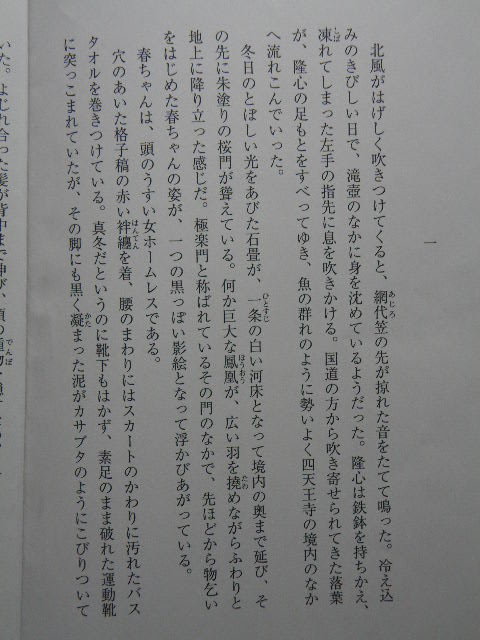 一
北風がはげしく吹きつけてくると、網代笠の先が掠れた音をたてて鳴った。冷え込
みのきびしい日で、滝壺のなかに身を沈めているようだった。隆心は鉄鉢を持ちかえ、
凍れてしまった左手の指先に息を吹きかける。国道の方から吹き寄せられてきた落葉
が、隆心の足もとをすべってゆき、魚の群れのように勢いよく四天王寺の境内のなか
へ流れこんでいった。
冬日のとぼしい光をあびた石畳が、一条の白い河床となって境内の奥まで延び、そ
の先に朱塗りの桜門が聳えている。何か巨大な鳳凰が、広い羽を撓めながらふわりと
地上に降り立った感じだ。極楽門と称ばれているその門のなかで、先ほどから物乞い
をはじめた春ちゃんの姿が、一つの黒っぽい影絵となって浮かびあがっている。
春ちゃんは、頭のうすい女ホームレスである。
穴のあいた格子稿の赤い袢纏を着、腰のまわりにはスカートのかわりに汚れたバス
タオルを巻きつけている。真冬だというのに靴下もはかず、素足のまま破れた運動靴
に突っこまれていたが、その脚にも黒く凝まった泥がカサブタのようにこびりついて
いた。よじれ合った髪が背中まで伸び、項の